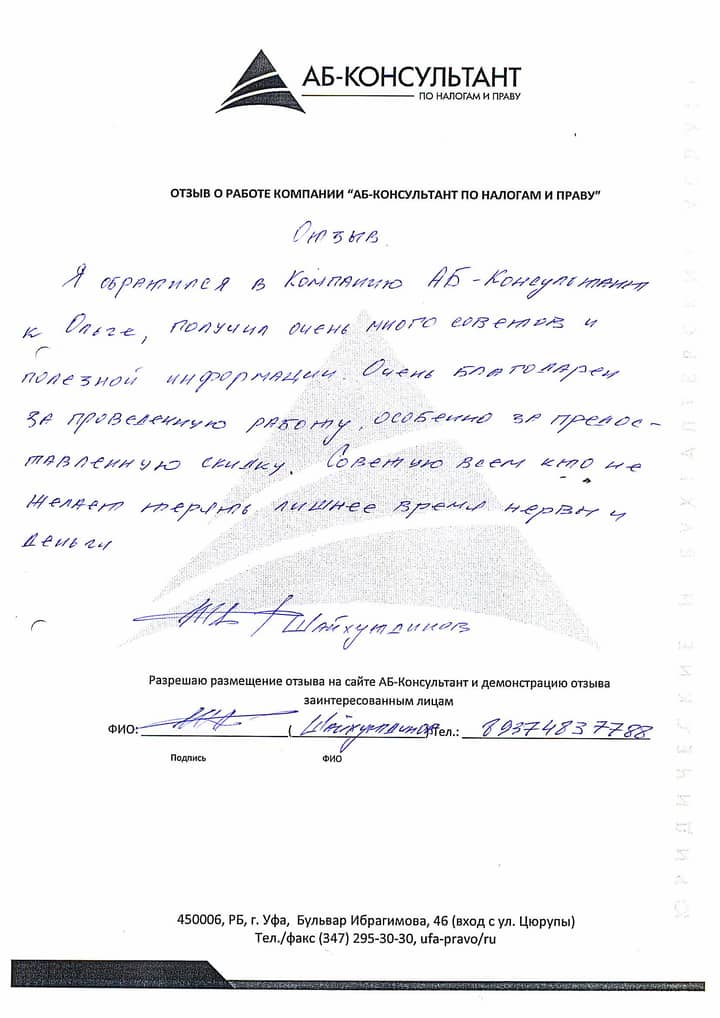 АБ-КОНСУЛЬТАНТ
ПО НАЛОГАМ И ПРАВУ
ОТЗЫВ О РАБОТЕ КОМПАНИИ “АБ-КОНСУЛЬТАНТ ПО НАЛОГАМ И ПРАВУ”
Отзыв
Я обратился в Компанию АБ-Консультант
к Ольге, получил очень много советов и
полезной информации. Очень благодарен
за проведенную работу, особенно за предос-
тавленную скидку. Советую всем кто не
желает терять лишнее время нервы и
деньги
Шайхутдинов
Разрешаю размещение отзыва на сайте АБ-Консультант и демонстрацию отзыва
заинтересованным лицам
ФИО: ( Шайхутдинов )Тел.: 89374837788
Подпись ФИО
450006, РБ, г. Уфа, Бульвар Ибрагимова, 46 (вход с ул. Цюрупы)
Тел./факс (347) 295-30-30, ufa-pravo/ru